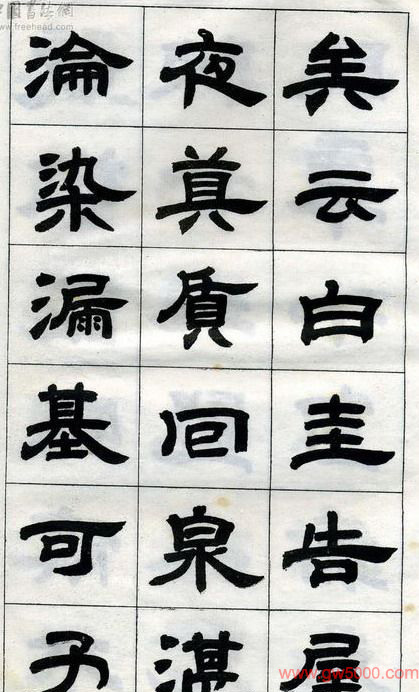 中國書法網
www.freehead.com
矣云白圭告
夜真質回泉湛
淪染漏基可
www.gw5000.com